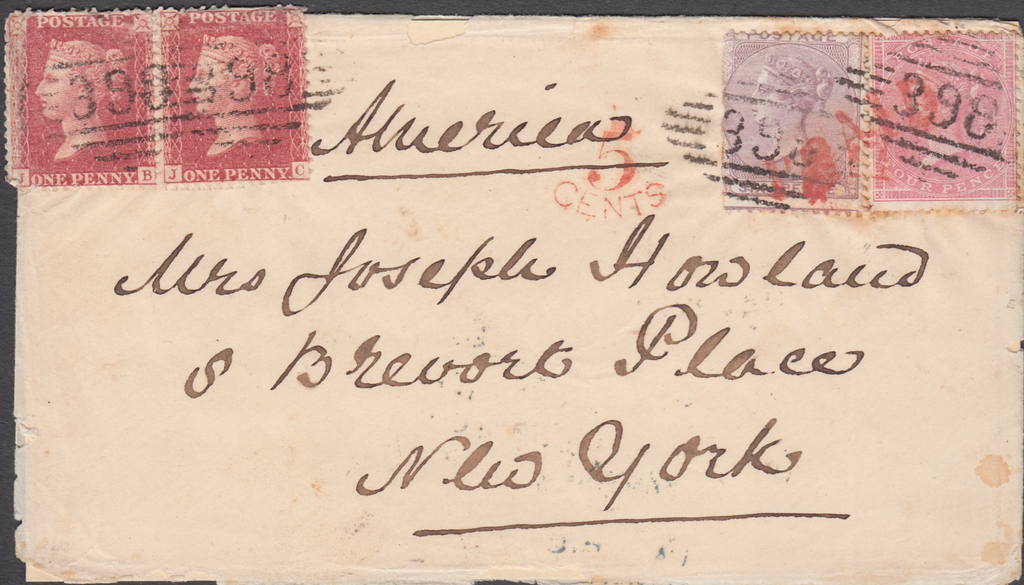 POSTAGE POSTAGE POSTAGE
398 398 398 398
J ONE PENNY B J ONE PENNY C
FOUR PENCE
America
5
CENTS
Mrs Joseph Howland
8 Brevort Place
New York